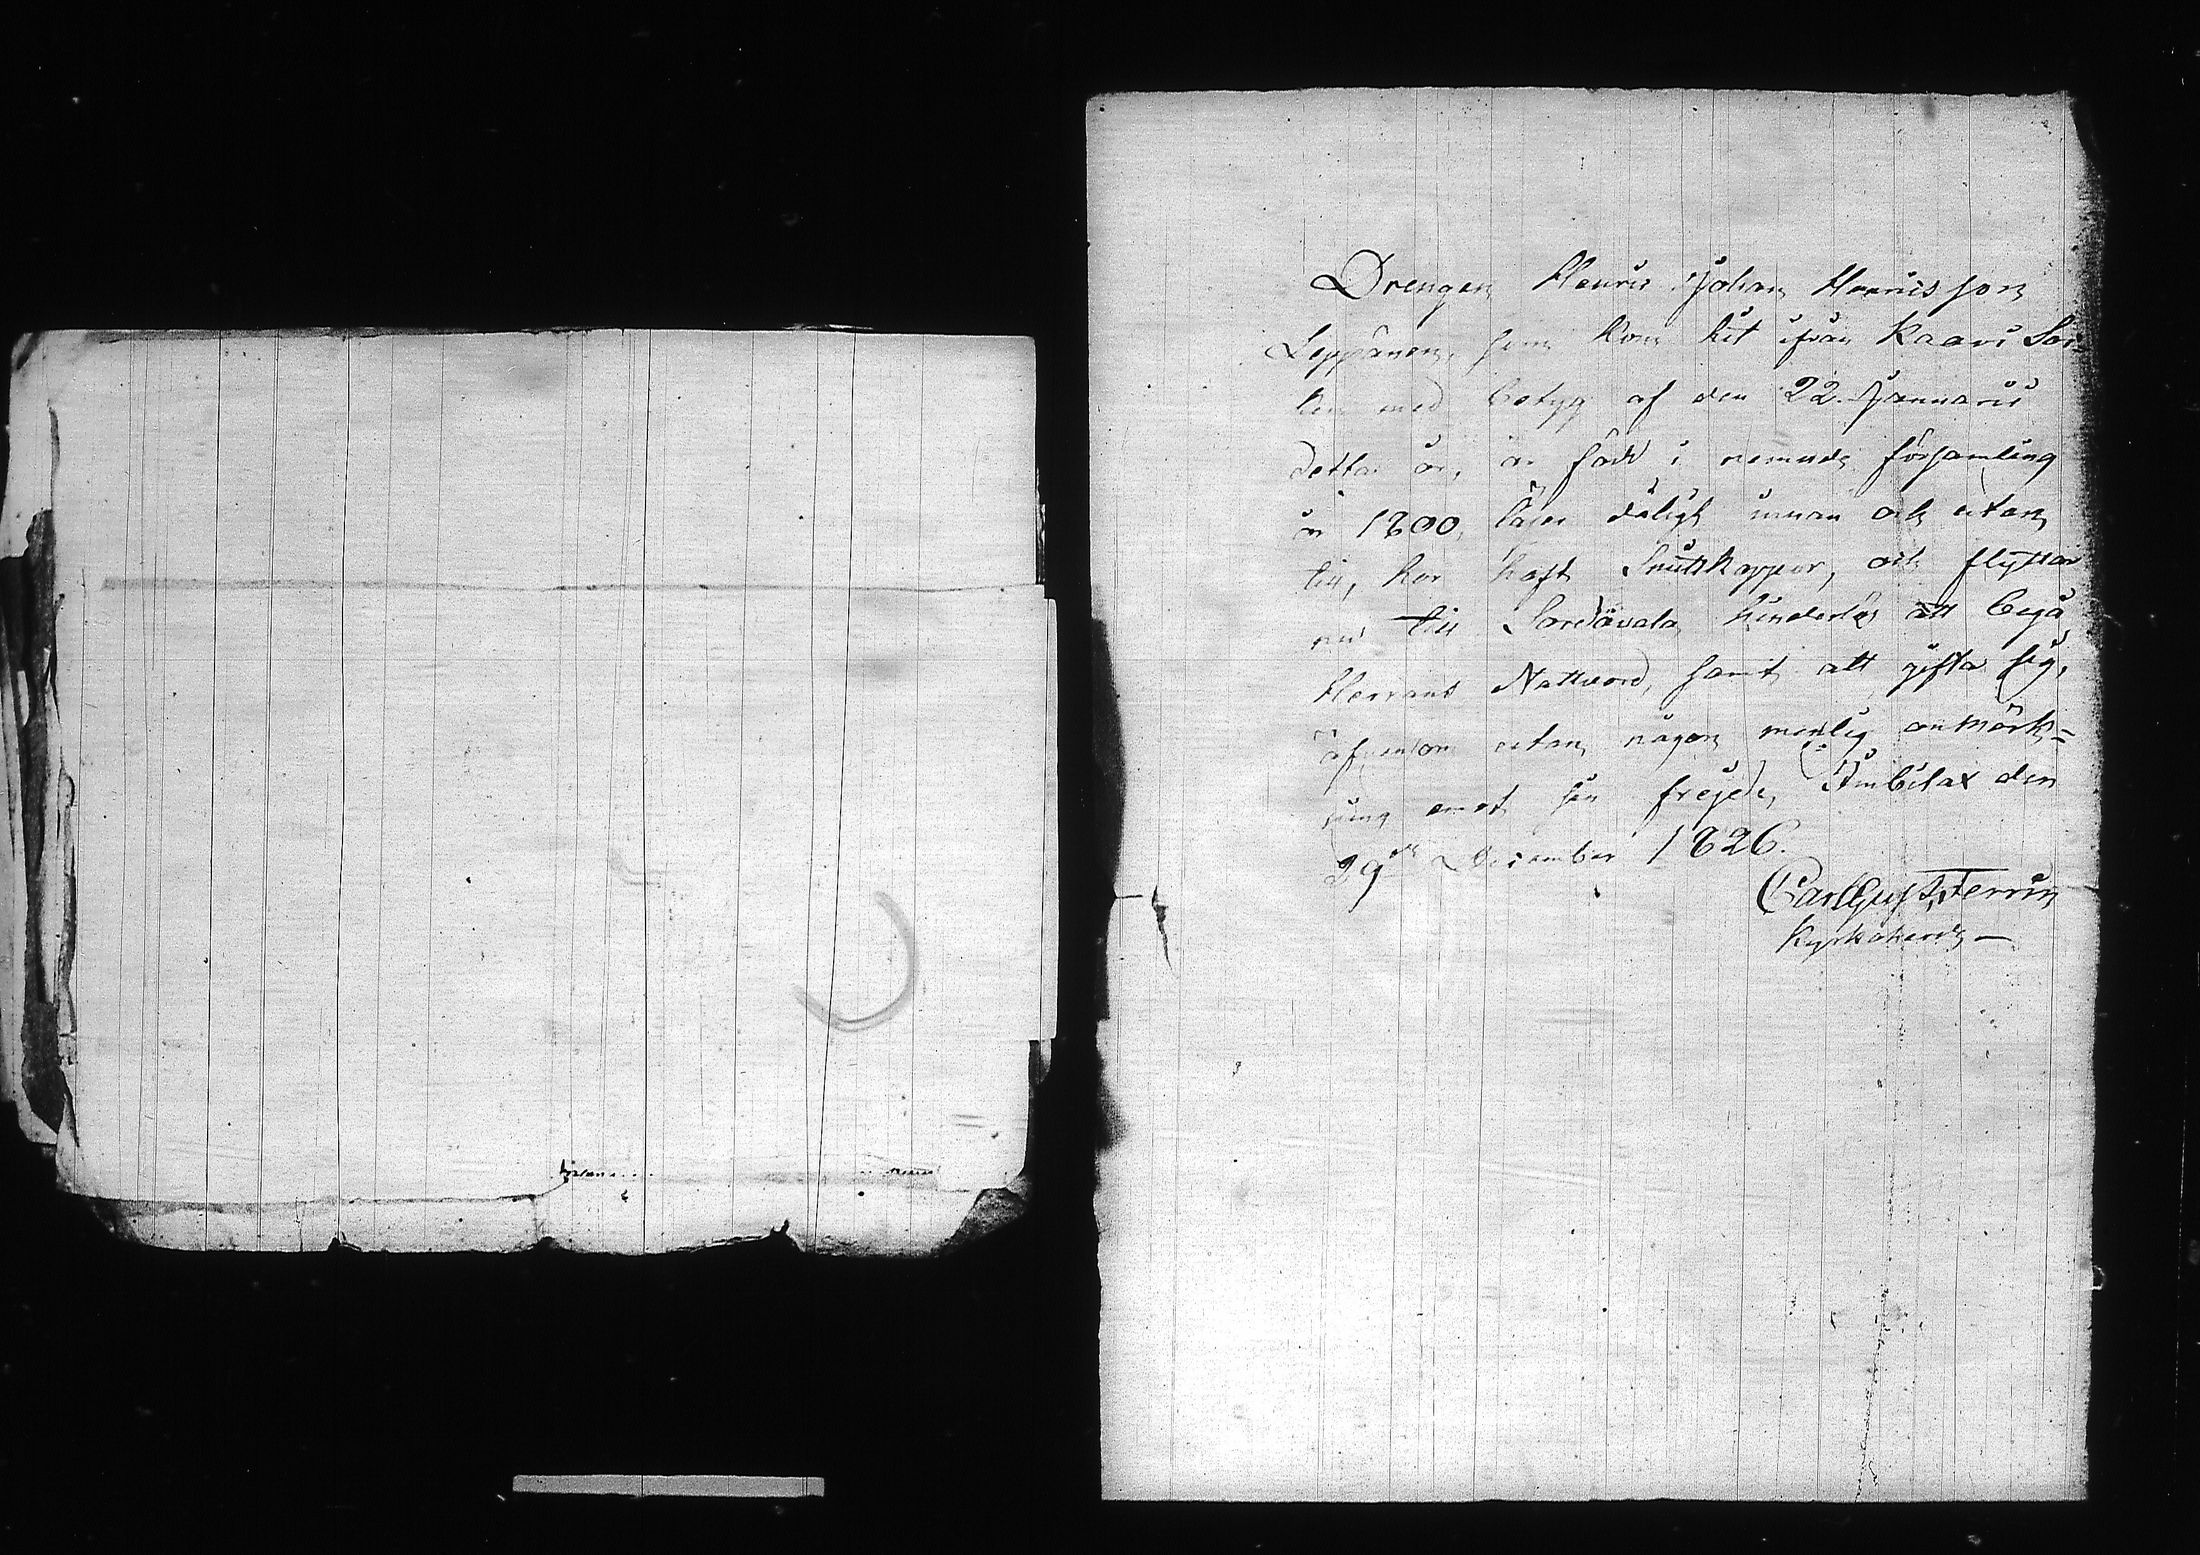 Drengen Henric Johan Henricsson
Leppänen, som kom hit ifrån Kaavi Soc=
ken med betyg af den 22. Januarii
detta år, är född i nemnde församling
år 1800, läser dåligt innan och utan
till, har haft Smittkoppor, och flyttar
nu till Sordavala hinderlös att begå
Herrans Nattvard, samt att gifta sig,
äfven utan någon menlig anmärk=
ning emot sin frejd, Imbilax den
29de December 1826.
Carl Gust,
Kyrkoherde